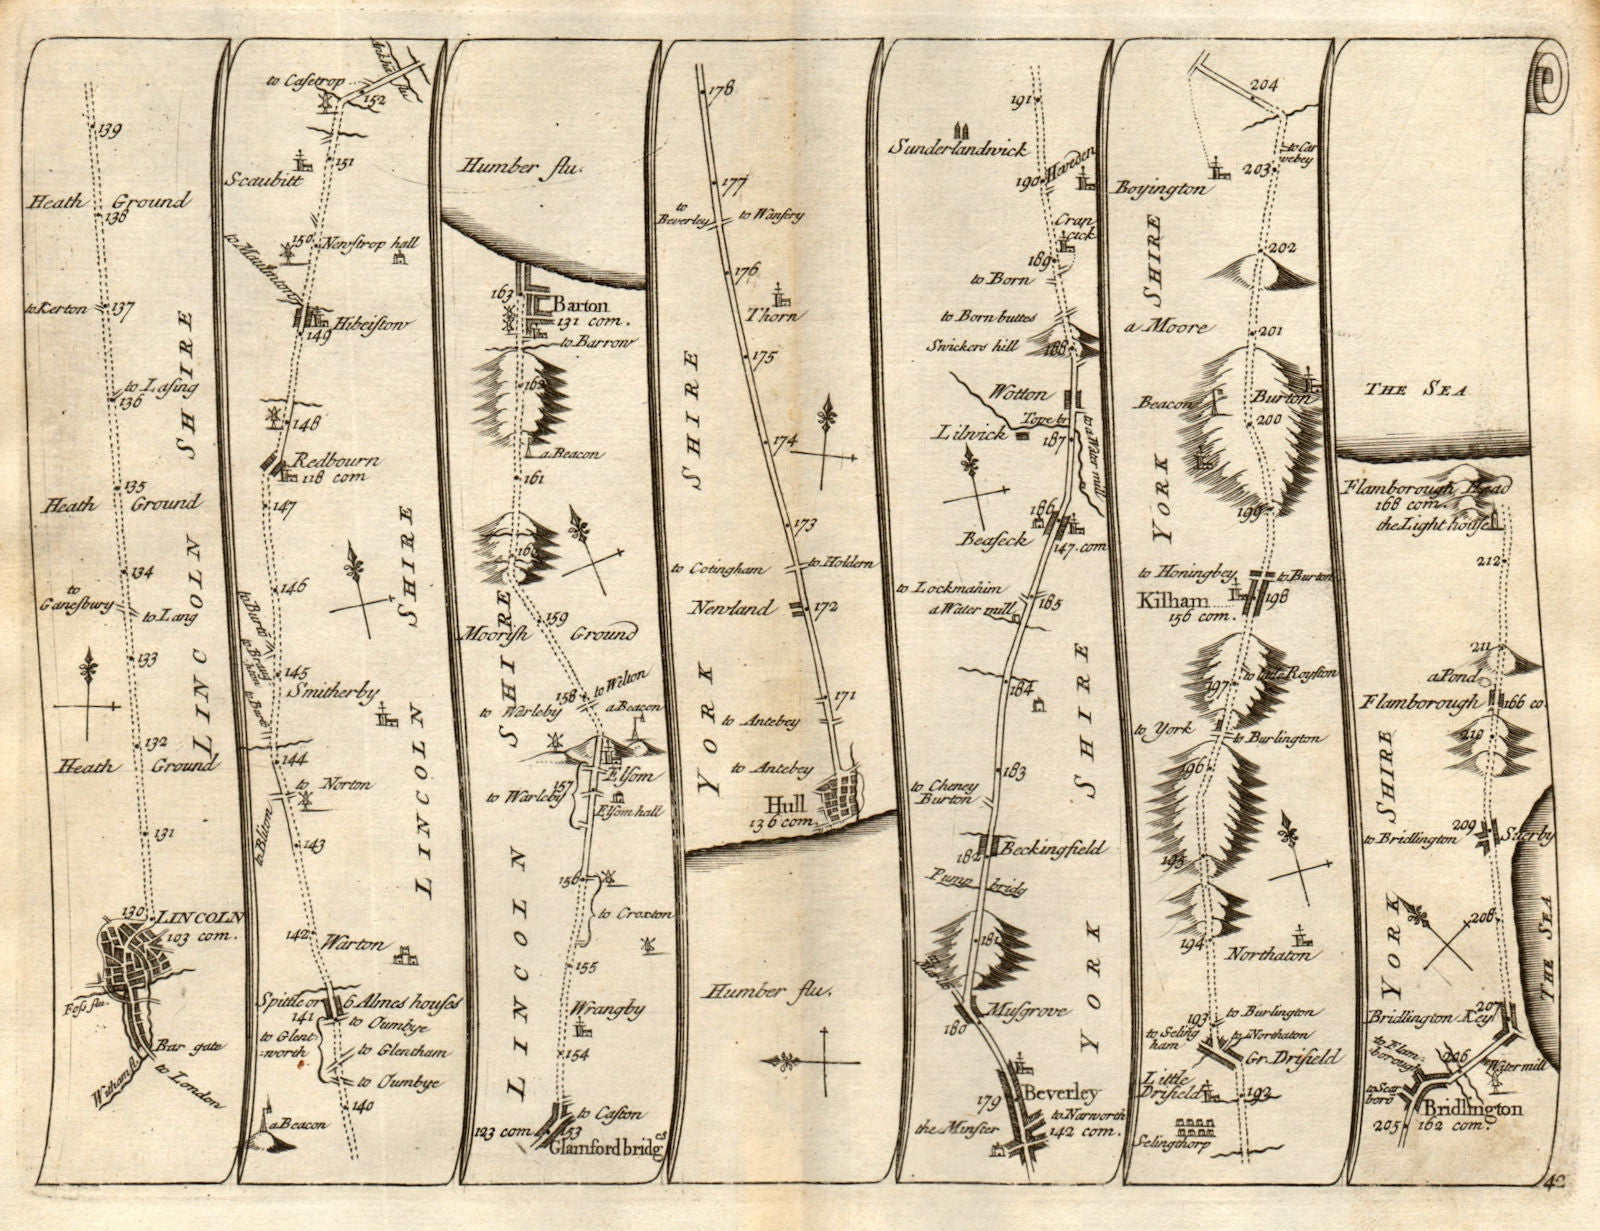 139
Heath Ground
138
to Kerton
137
to Lasing
136
135
Heath Ground
134
to
Ganesbury
to Lang
133
132
Heath Ground
131
130
LINCOLN
103 com.
Foss flu.
Bar gate
Witham fl.
to London
LINCOLN SHIRE
to Casetrop
Ankham flu
152
151
Scaubitt
150
Newstrop hall
to Maulmong
Hibeistow
149
148
Redbourn
118 com
147
146
145
Smitherby
144
to Norton
to Bliton
143
142
Warton
Spittle or 6 Almes houses
141
to Oumbye
to Glent
=worth
to Glentham
to Oumbye
140
a Beacon
LINCOLN SHIRE
Humber flu.
163
Barton
131 com.
to Barrow
162
a Beacon
161
160
159
Moorish Ground
158
to Welton
to Warleby
a Beacon
Elsom
157
to Warleby
Elsom hall
156
to Croxton
155
Wrangby
154
to Caston
123 com.
153
Glamford bridg
LINCOLN SHIRE
178
177
to
Beverley
to Wansery
176
Thorn
175
174
173
to Cotingham
to Holdern
Newland
172
171
to Antebey
to Antebey
Hull
136 com.
YORK SHIRE
Humber flu.
191
Sunderlandwick
190
Heveden
Cran
cick
189
to Born
to Born buttes
Swickers hill
188
Wotton
Tope br
Lilwick
187
to a Water mill
186
Beaseck
147. com
to Lockmahim
a Water mill
185
184
183
to Cheney
Burton
182
Beckingfield
Pump bridg
181
Musgrove
180
179
Beverley
to Narworth
the Minster
142 com.
YORK SHIRE
204
to Car
webey
203
Boyington
202
a Moore
201
Beacon
Burton
200
199
to Honingbey
to Burton
Kilham
198
156 com.
197
to little Royston
to York
to Burlington
196
195
194
Northaton
193
to Burlington
to Seling
ham
to Northaton
Gr. Drifield
Little
Drifield
192
Selingthorp
YORK SHIRE
THE SEA
Flamborough Head
168 com.
the Light house
212
211
a Pond
Flamborough
166 co
210
209
to Bridlington
Suerby
208
207
Bridlington Key
to Flam-
borough
206
Water mill
to Scar
boro
Bridlington
205
162 com.
YORK SHIRE
THE SEA